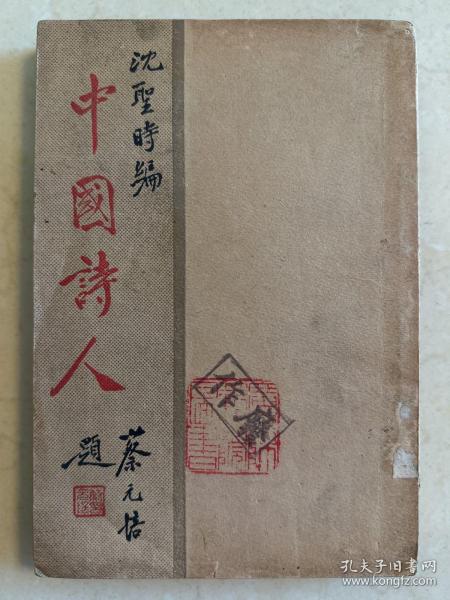 沈聖時編
中國詩人
蔡元培
題
作廢
孔夫子旧书网
www.kongfz.com